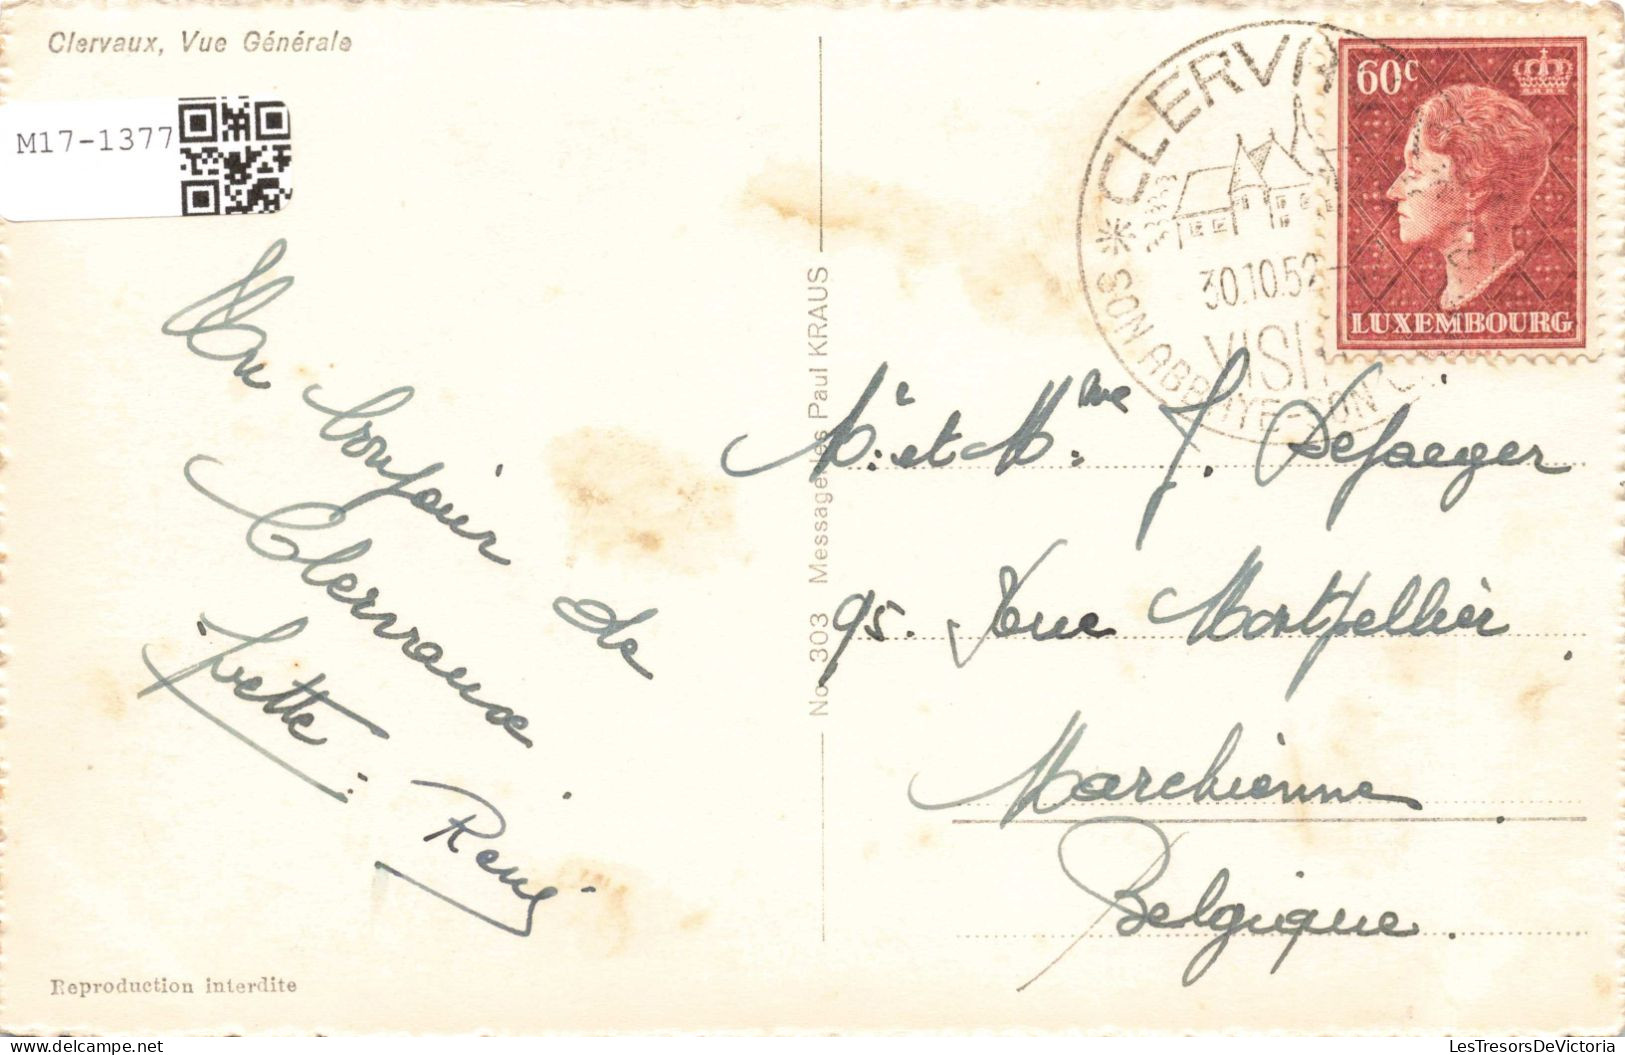 Clervaux, Vue Générale
M17-1377
Un bonjour de
Clervaux.
Yvette :
René
Reproduction interdite
No 303 Messageries Paul KRAUS
CLERVA
30.10.52
VISI
SON ABBAYE - SON
60c
LUXEMBOURG
Mr. et Mme. J. DeJaeger
95. Rue Montpellier.
Marchienne.
Belgique.
delcampe.net
LesTresorsDeVictoria